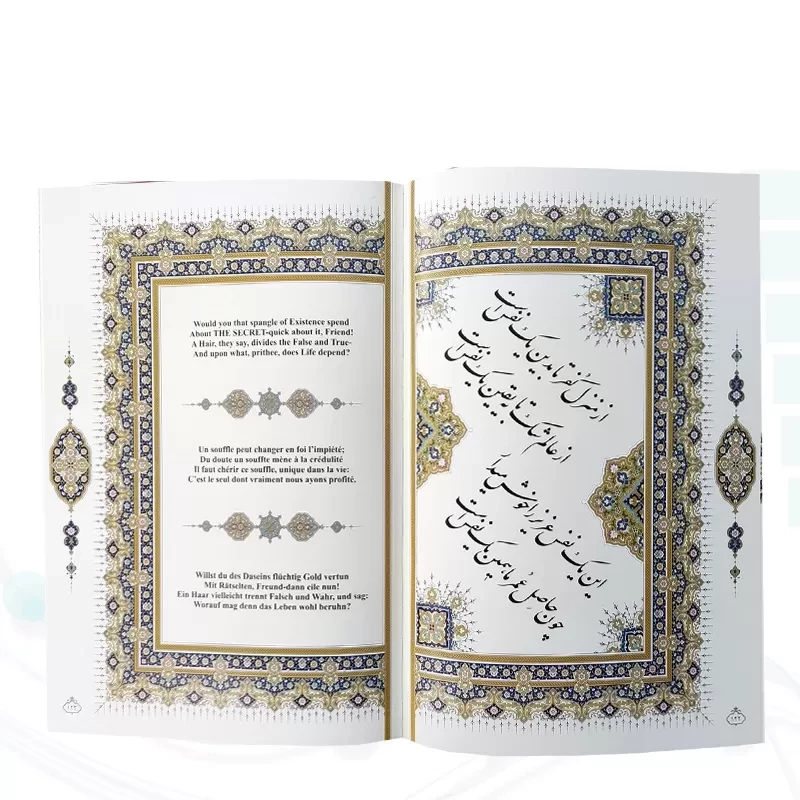 Would you that spangle of Existence spend
About THE SECRET-quick about it, Friend!
A Hair, they say, divides the False and True-
And upon what, prithee, does Life depend?
Un souffle peut changer en foi l'impiété;
Du doute un souffte mène à la crédulité
Il faut chérir ce souffle, unique dans la vie:
C'est le seul dont vraiment nous ayons profité.
Willst du des Daseins flüchtig Gold vertun
Mit Rätselten, Freund-dann cile nun!
Ein Haar vielleicht trennt Falsch und Wahr, und sag:
Worauf mag denn das Leben wohl beruhn?
۱۲۳
از منزل کفر تا بدین یک نفس است
از عالم شک تا بیقین یک نفس است
این یک نفس عزیز را خوش میدار
چون حاصل عمر ما همین یک نفس است
۱۲۲